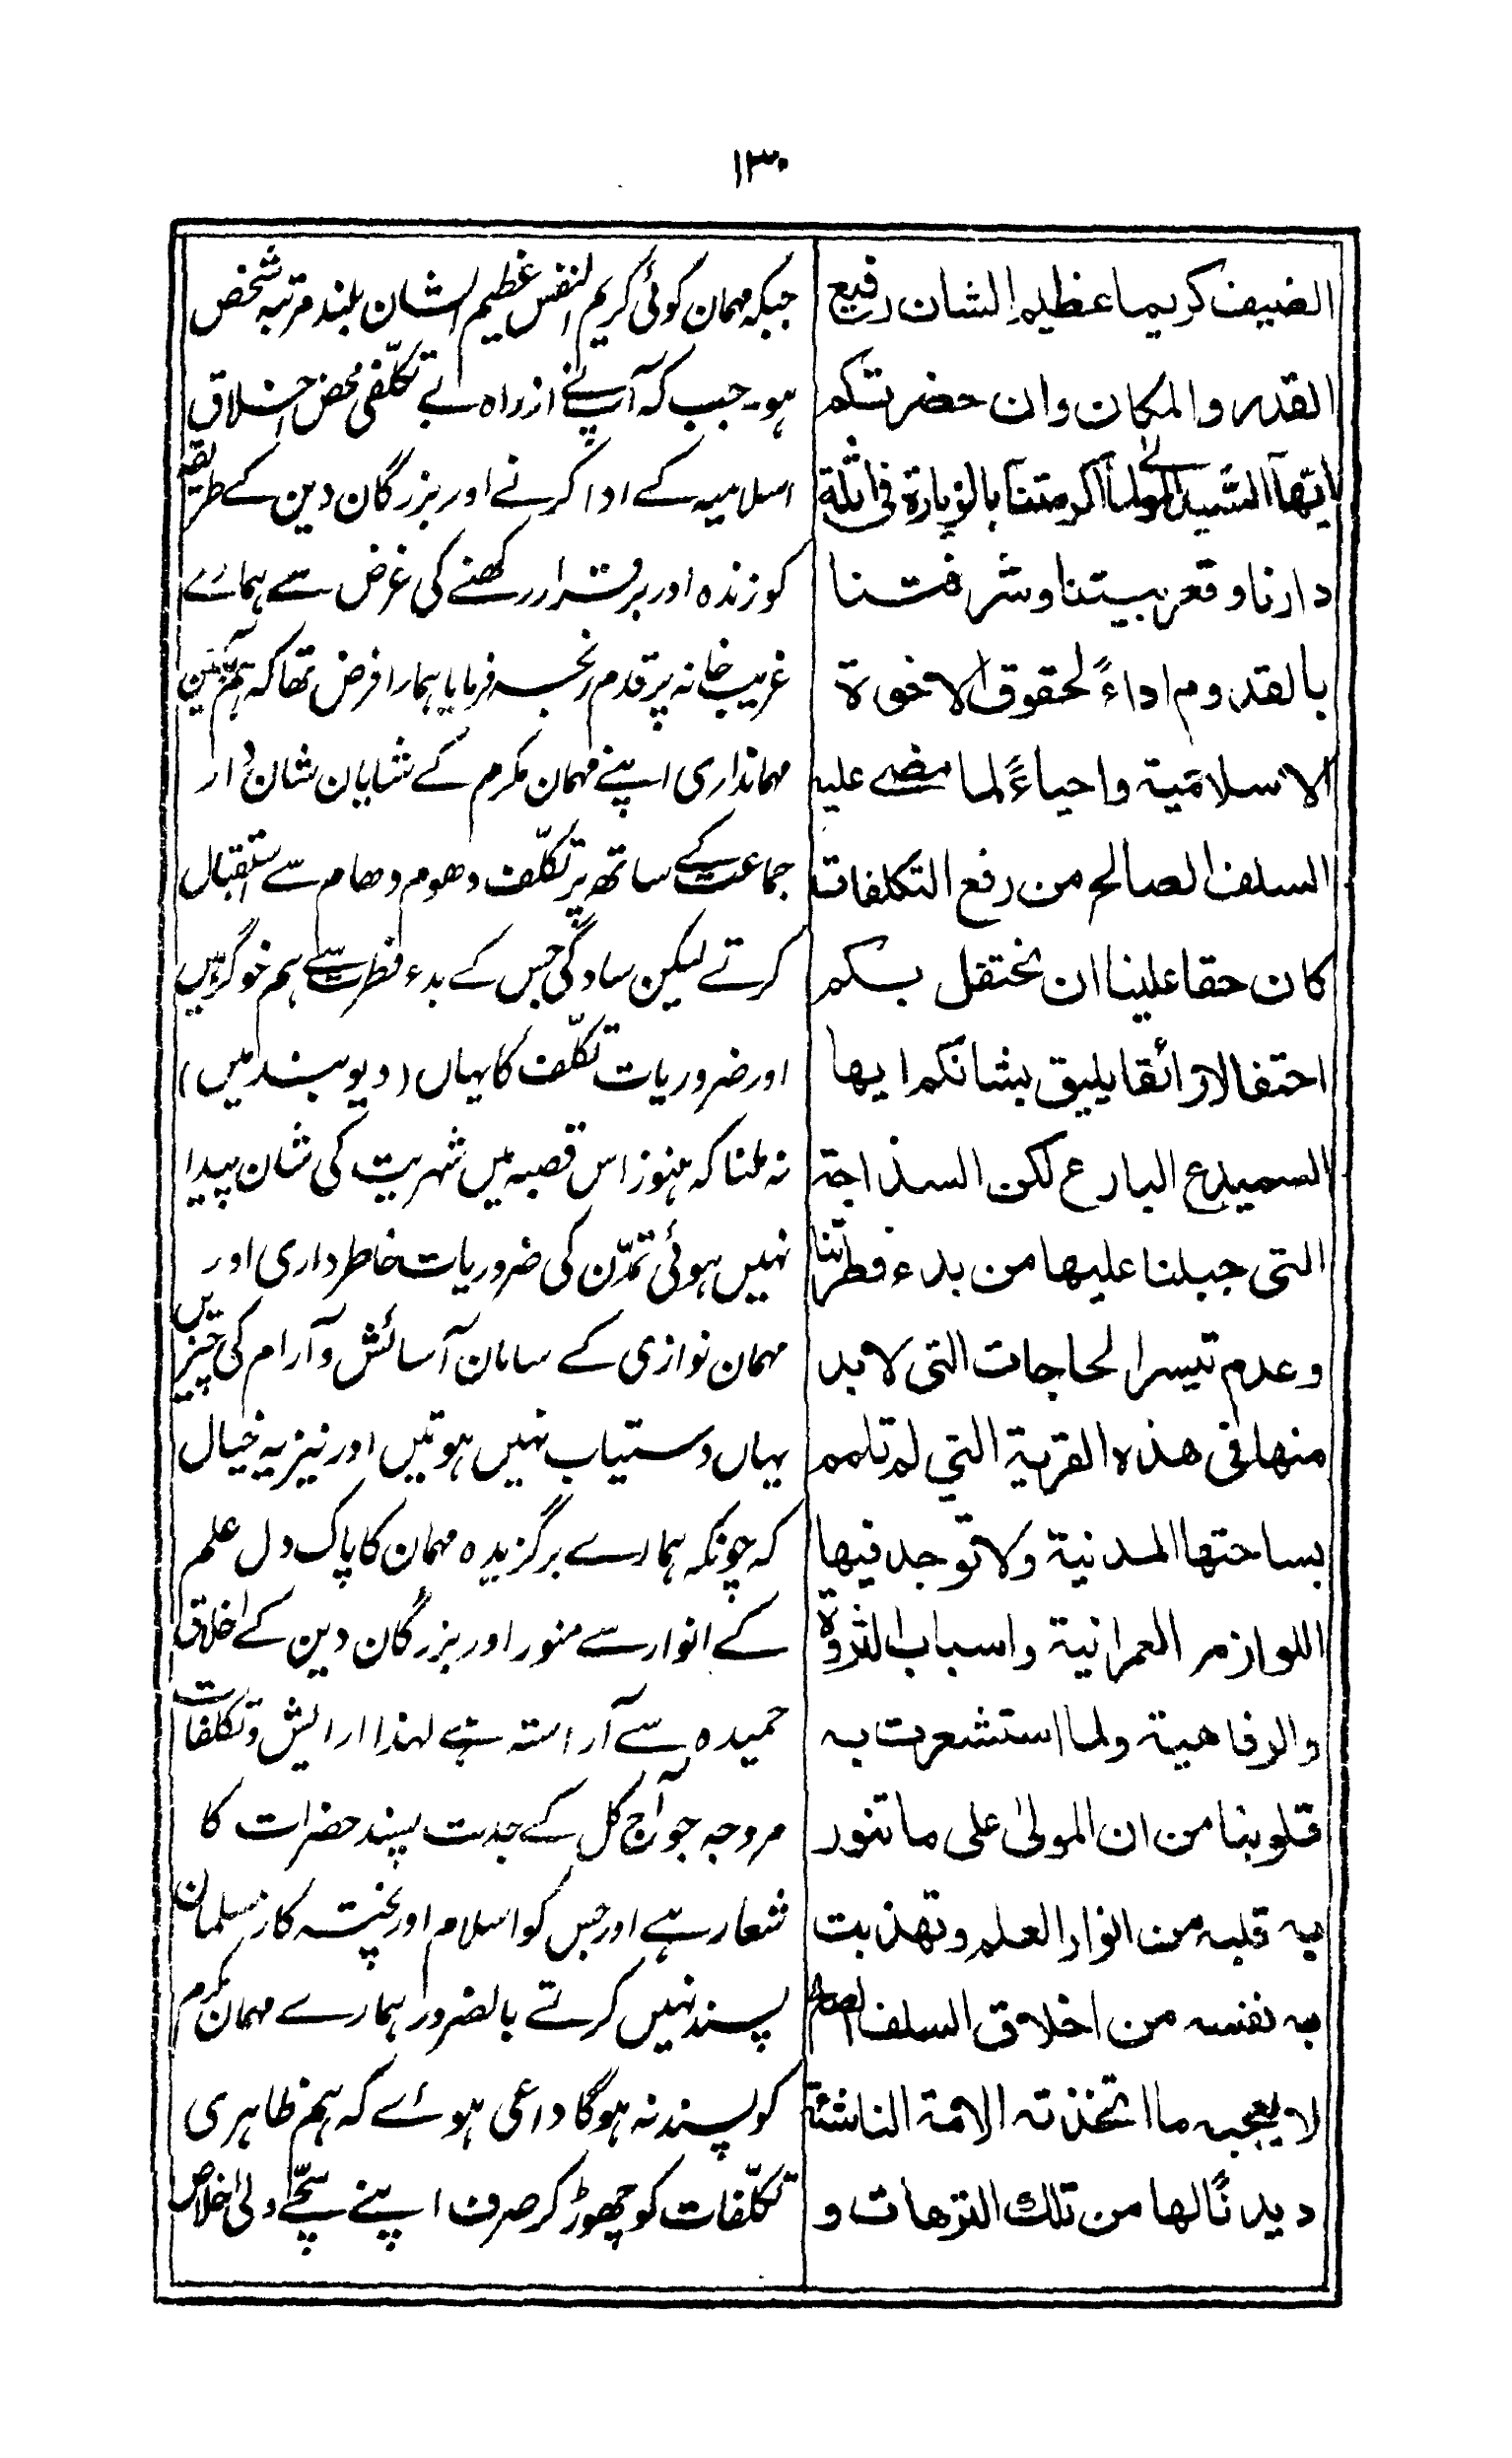 ۱۳۰
الضیف کریما عظیم الشان رفیع
القدر والمکان وان حضرتکم
ایّھا السّید المولیٰ اکرمتنا بالزیارۃ فی
دارنا وقعر بیتنا وشرفتنا
بالقدوم اداءً لحقوق الاخوۃ
الاسلامیۃ واحیاءً لما مضے علیہ
السلف الصالح من رفع التکلفات
کان حقا علینا ان نحتفل بکم
احتفالا رائقا یلیق بشانکم ایھا
السمیدع البارع لکن السذاجۃ
التی جبلنا علیھا من بدء فطرتنا
وعدم تیسر الحاجات التی لابد
منھا فی ھذہ القریۃ التی لم تلمم
بساحتھا المدنیۃ ولا توجد فیھا
اللوازم العمرانیۃ واسباب الثروۃ
والرفاھیۃ ولما استشعرت بہ
قلوبنا من ان المولیٰ علی ما تنور
بہ قلبہ من انوار العلم وتھذبت
بہ نفسہ من اخلاق السلف الصالح
لا یعجبہ ما اتخذتہ الامۃ الناشئۃ
دیدنًا لھا من تلک الترھات و
جبکہ مہمان کوئی کریم النفس عظیم الشان بلند مرتبہ شخص
ہو۔ جب کہ آپ نے از راہ بے تکلّفی محض اخلاق
اسلامیہ کے ادا کرنے اور بزرگان دین کے طریقہ
کو زندہ اور برقرار رکھنے کی غرض سے ہمارے
غریب خانہ پر قدم رنجہ فرمایا ہمارا فرض تھا کہ ہم
مہمانداری اپنے مہمان مکرم کے شایان شان
جماعت کے ساتھ پر تکلّف دھوم دھام سے استقبال
کرتے لیکن سادگی جس کے بدء فطرت سے ہم خوگر ہیں
اور ضروریات تکلّف کا یہاں (دیوبند میں)
نہ ملنا کہ ہنوز اس قصبہ میں شہریت کی شان پیدا
نہیں ہوئی تمدّن کی ضروریات خاطر داری اور
مہمان نوازی کے سامان آسائش و آرام کی چیزیں
یہاں دستیاب نہیں ہوتیں اور نیز یہ خیال
کہ چونکہ ہمارے برگزیدہ مہمان کا پاک دل علم
کے انوار سے منور اور بزرگان دین کے اخلاق
حمیدہ سے آراستہ ہے لہذا ارایش و تکلفات
مروجہ جو آج کل کے جدت پسند حضرات کا
شعار ہے اور جس کو اسلام اور پختہ کار مسلمان
پسند نہیں کرتے بالضرور ہمارے مہمان مکرم
کو پسند نہ ہوگا داعی ہوئے کہ ہم ظاہری
تکلّفات کو چھوڑ کر صرف اپنے سچّے دلی اخلاص